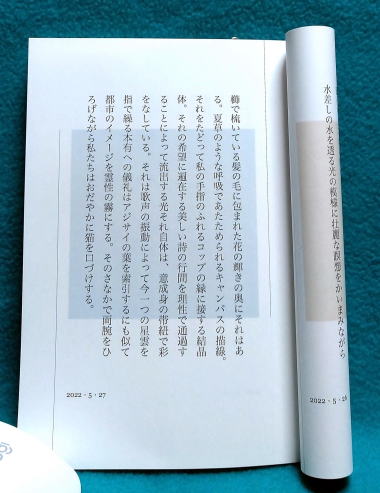 水差しの水を透る光の模様に壮麗な瞑想をかいまみながら
2022・5・26
櫛で梳いている髪の毛に包まれた花の輝きの奥にそれはあ
る。夏草のような呼吸であたためられるキャンバスの描線。
それをたどって私の手指のふれるコップの縁に接する結晶
体。それの希望に遍在する美しい詩の行間を理性で通過す
ることによって流出する光それ自体は、意成身の帯紐で彩
をなしている。それは歌声の振動によって今一つの星雲を
指で繰る本有への儀礼はアジサイの葉を索引するにも似て
都市のイメージを霊性の霧にする。そのさなかで両腕をひ
ろげながら私たちはおだやかに猫を口づけする。
2022・5・27